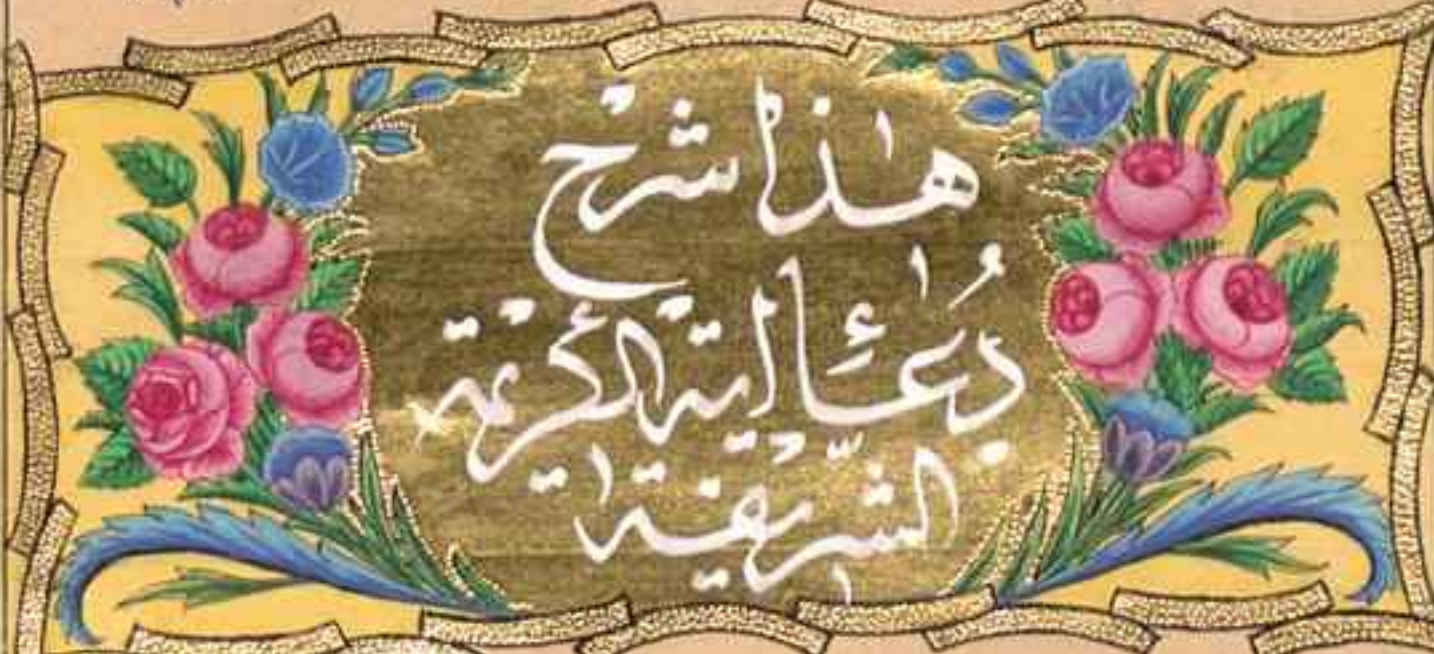 هٰذا شرح
دُعَاءِ اية الكريمة
الشّريفة